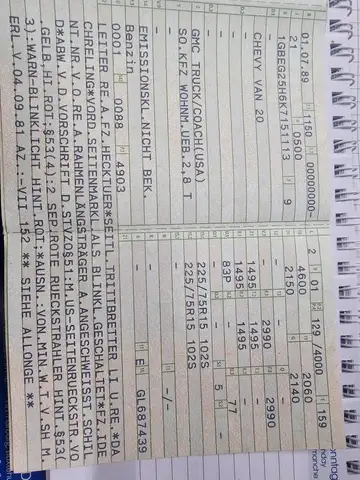 01.07.89
1150
00000000-
21
0500
1GBEG25H6K7151113
9
CHEVY VAN 20
-
GMC TRUCK/COACH(USA)
SO.KFZ WOHNM.UEB.2,8 T
-
EMISSIONSKL.NICHT BEK.
Benzin
0001
0088
4903
2
01
129
/4000
159
4600
2060
2150
2140
-
-
-
-
2990
2990
1495
-
1495
1495
-
1495
83P
-
77
-
5
225/75R15 102S
225/75R15 102S
-
-
-/-
-
E
GL687439
LEITER RE.A.FZ.HECKTUER*SEITL.TRITTBRETTER LI U.RE.*DA
CHRELING*VORD.SEITENMARKL.ALS BLINKL.GESCHALTET*FZ.IDE
NT.NR.V.O.RE.A.RAHMENLÄNGSTRÄGER A.ANGESCHWEISST.SCHIL
D*ABW.V.D.VORSCHRIFT D.STVZO§51:M.US-SEITENRUECKSTR.VO
.GELB,HI.ROT;§53(4):2 SEP.ROTE RUECKSTRAHLER HINT.§53(
3):WARN-BLINKLICHT HINT.ROT:*AUSN..VON.MIN.W.T.V.SH M.
ERL.V.04.09.81 AZ.:-VII 152 ** SIEHE ALLONGE **
onntag
manche